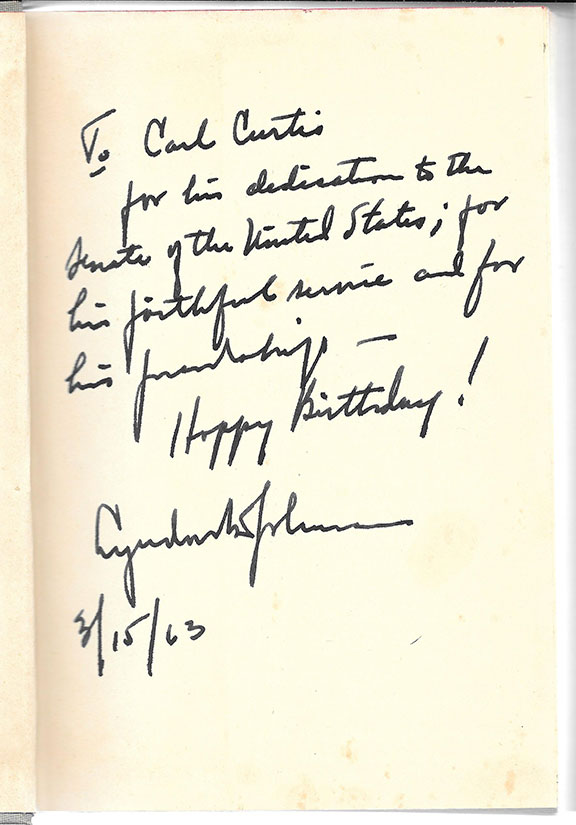 To Carl Curtis
for his dedication to the
Senate of the United States; for
his faithful service and for
his friendship —
Happy Birthday!
Lyndon B Johnson
3/15/63